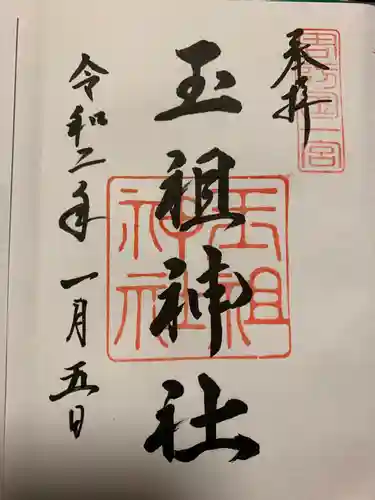 奉拝
周防国一宮
玉祖神社
玉祖神社
令和二年一月五日